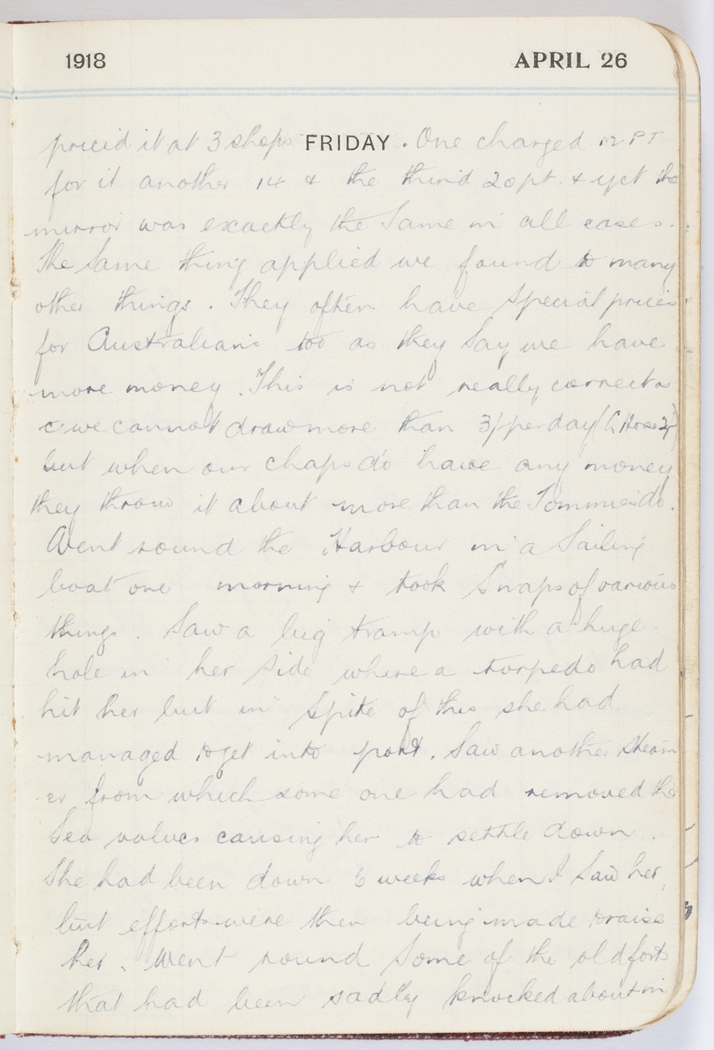 1918 APRIL 26
pricid it at 3 shops FRIDAY. One charged 12 PT
for it another 14 & the third 20pt. & yet the
mirror was exactly the Same in all cases.
The Same thing applied we found to many
other things. They often have special prices
for Australians too as they Say we have
more money. This is not really correct as
we cannot draw more than 3/- per day
but when our chaps do have any money
they throw it about more than the Tommies do.
Went round the Harbour in a Sailing
boat one morning & took Snaps of various
things. Saw a big tramp with a huge
hole in her side where a torpedo had
hit her but in Spite of this she had
managed to get into port. Saw another steam
er from which some one had removed the
Sea valves causing her to settle down.
She had been down 6 weeks when I Saw her,
but efforts were then being made to raise
her. Went round Some of the old forts
that had been sadly knocked about in